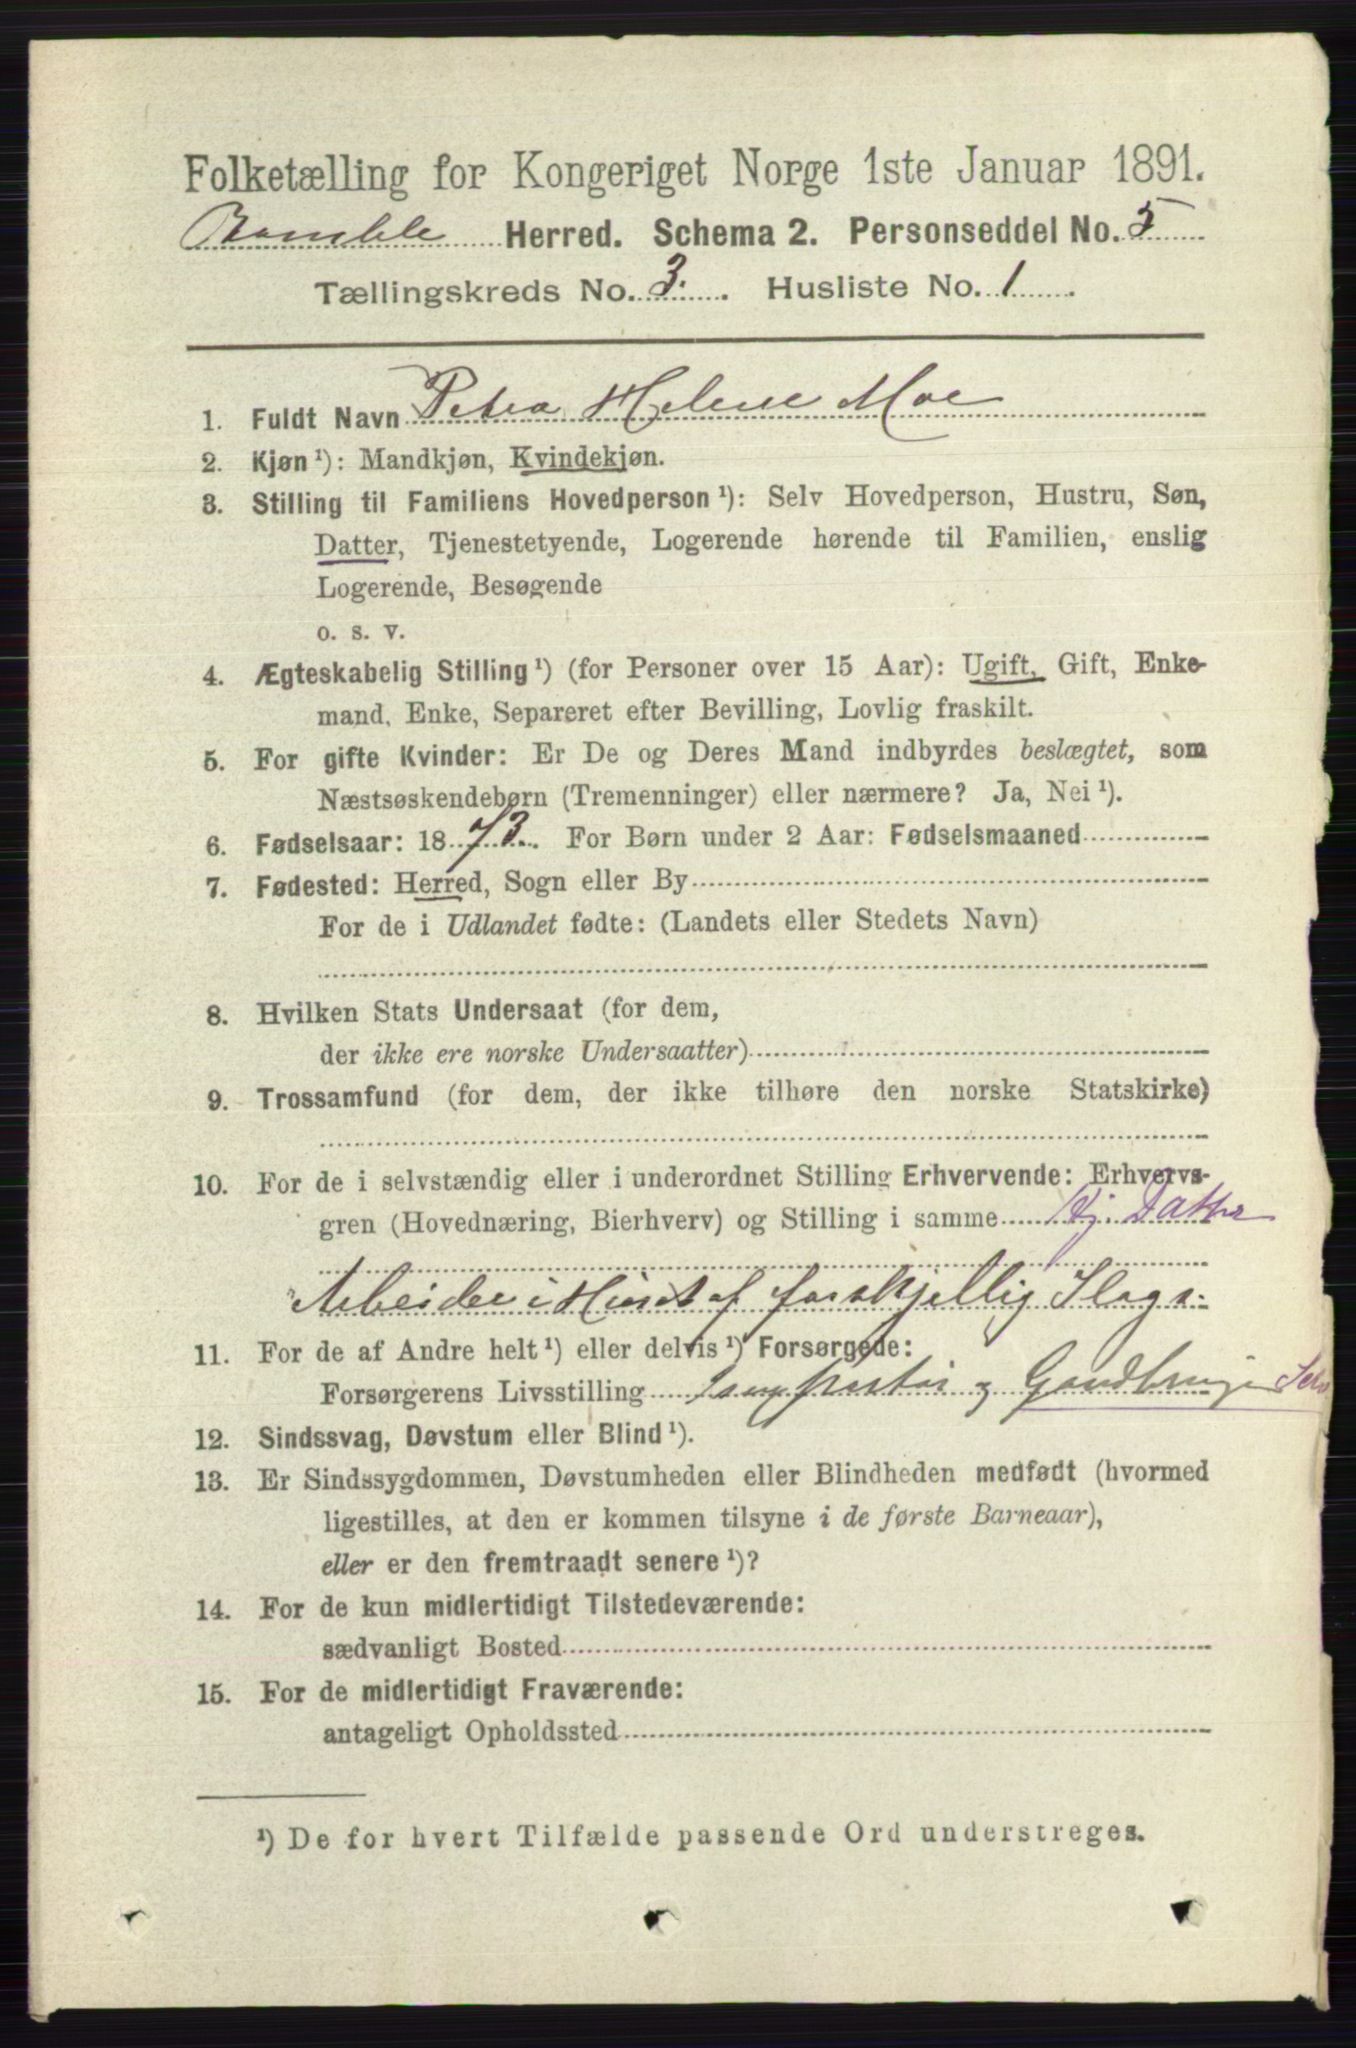 Folketælling for Kongeriget Norge 1ste Januar 1891.
Bamble Herred. Schema 2. Personseddel No. 5
Tællingskreds No. 3. Husliste No. 1
1. Fuldt Navn Petra Helene Moe
2. Kjøn ¹): Mandkjøn, Kvindekjøn.
3. Stilling til Familiens Hovedperson ¹): Selv Hovedperson, Hustru, Søn,
Datter, Tjenestetyende, Logerende hørende til Familien, enslig
Logerende, Besøgende
o. s. v.
4. Ægteskabelig Stilling ¹) (for Personer over 15 Aar): Ugift, Gift, Enke-
mand, Enke, Separeret efter Bevilling, Lovlig fraskilt.
5. For gifte Kvinder: Er De og Deres Mand indbyrdes beslægtet, som
Næstsøskendebørn (Tremenninger) eller nærmere? Ja, Nei ¹).
6. Fødselsaar: 1873. For Børn under 2 Aar: Fødselsmaaned
7. Fødested: Herred, Sogn eller By
For de i Udlandet fødte: (Landets eller Stedets Navn)
8. Hvilken Stats Undersaat (for dem,
der ikke ere norske Undersaatter)
9. Trossamfund (for dem, der ikke tilhøre den norske Statskirke)
10. For de i selvstændig eller i underordnet Stilling Erhvervende: Erhvervs-
gren (Hovednæring, Bierhverv) og Stilling i samme Hj. Datter
Arbeider i Huset af forskjellig Slags.
11. For de af Andre helt ¹) eller delvis ¹) Forsørgede:
Forsørgerens Livsstilling og Gaardbruger Selv
12. Sindssvag, Døvstum eller Blind ¹).
13. Er Sindssygdommen, Døvstumheden eller Blindheden medfødt (hvormed
ligestilles, at den er kommen tilsyne i de første Barneaar),
eller er den fremtraadt senere ¹)?
14. For de kun midlertidigt Tilstedeværende:
sædvanligt Bosted
15. For de midlertidigt Fraværende:
antageligt Opholdssted
¹) De for hvert Tilfælde passende Ord understreges.